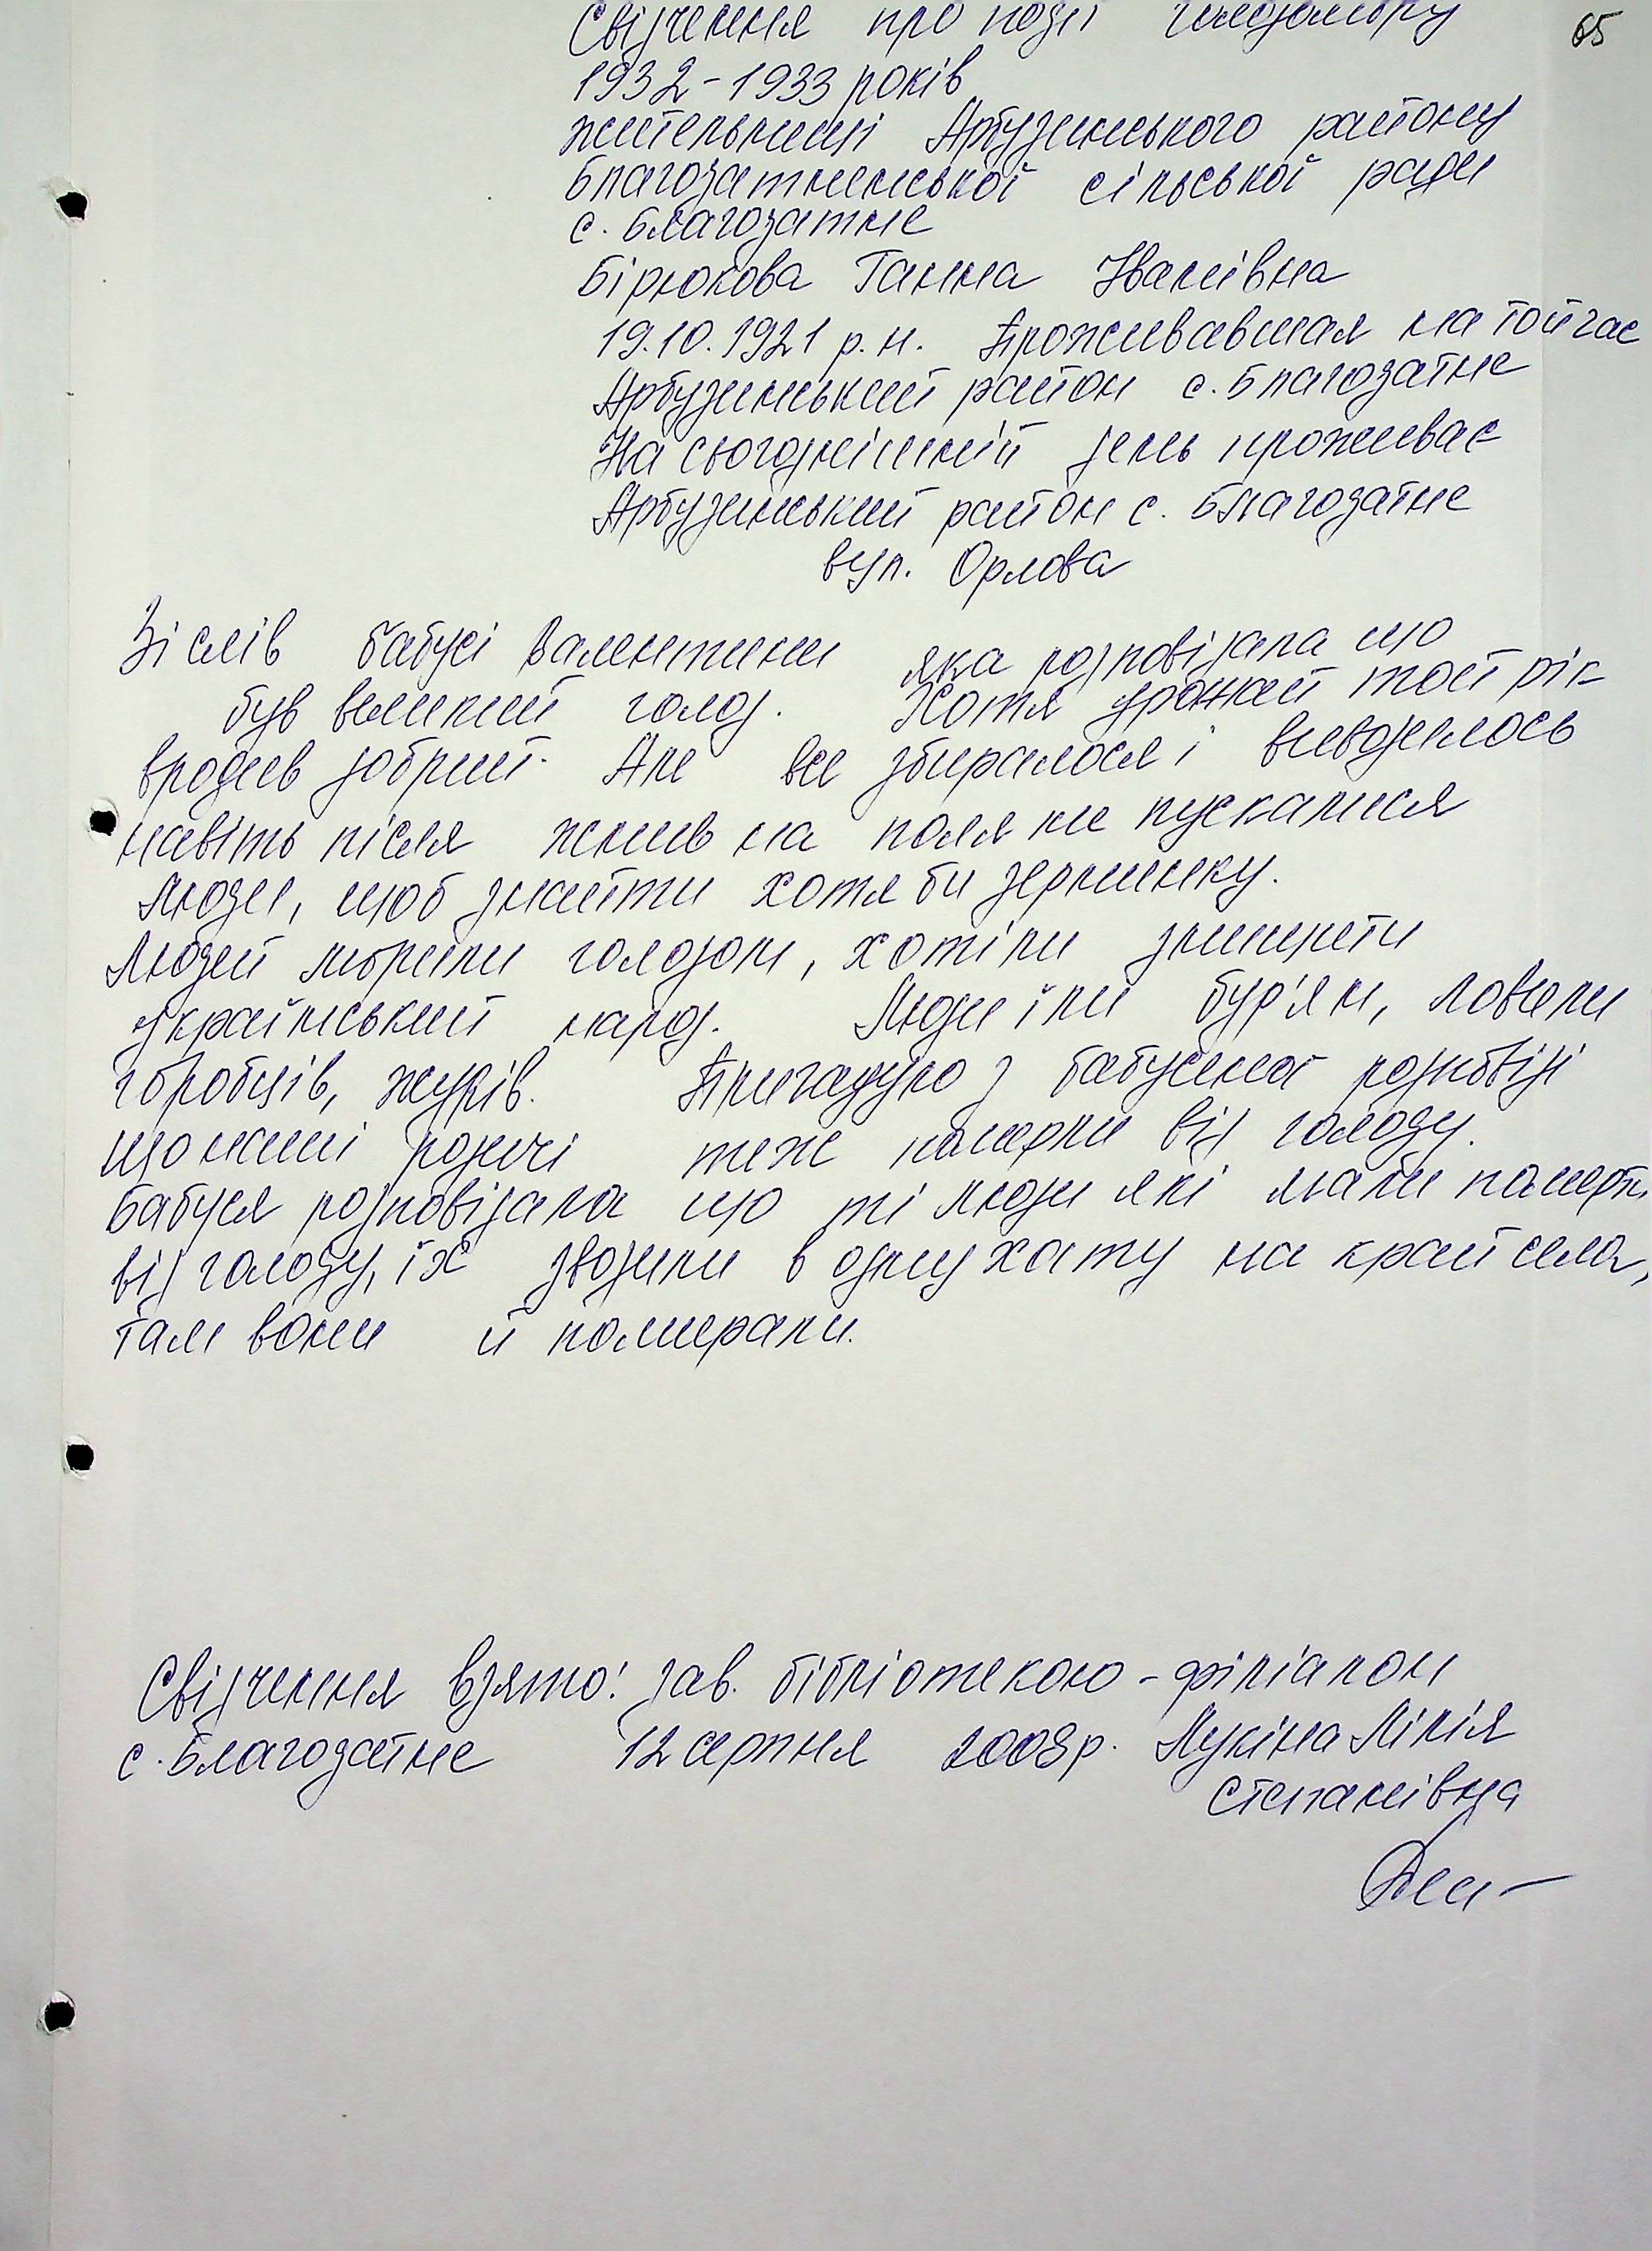 65
Свідчення про події голодомору
1932-1933 років
жительниці Арбузинського району
Благодатненської сільської ради
с. Благодатне
Бірюкова Ганна Іванівна
19.10.1921 р.н. Проживавшая на той час
Арбузинський район с. Благодатне
На сьогоднішній день проживає
Арбузинський район с. Благодатне
вул. Орлова
Зі слів бабусі Валентини яка розповідала що
був великий голод. Хотя урожай той рік
вродив добрий. Але все збиралося і вивозилось
навіть після жнив на поля не пускалися
люди, щоб знайти хотя би зернинку.
Людей морили голодом, хотіли знищити
український народ. Люди їли бур'ян, ловили
горобців, жуків. Пригадую з бабусиної розповіді
що наші родичі теж померли від голоду.
Бабуся розповідала що ті люди які мали померти
від голоду, їх звозили в одну хату на край села,
там вони й помирали.
Свідчення взято: зав. бібліотекою-філіалом
с. Благодатне 12 серпня 2008р. Лукіна Лілія
Степанівна